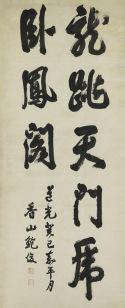 龍跳天門虎
臥鳳閣
道光癸巳嘉平月
香山鮑俊